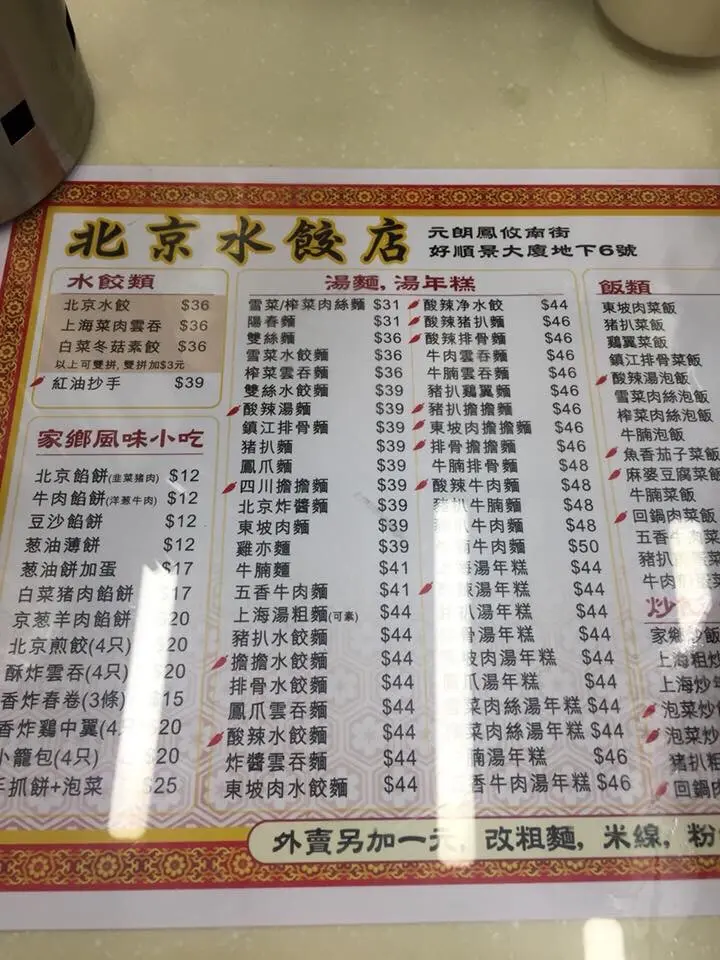 北京水餃店
元朗鳳攸南街
好順景大廈地下6號
水餃類
北京水餃 $36
上海菜肉雲吞 $36
白菜冬菇素餃 $36
以上可雙拼, 雙拼加$3元
紅油抄手 $39
家鄉風味小吃
北京餡餅(韭菜豬肉) $12
牛肉餡餅(洋葱牛肉) $12
豆沙餡餅 $12
葱油薄餅 $12
葱油餅加蛋 $17
白菜猪肉餡餅 17
京葱羊肉餡餅 20
北京煎餃(4只) 20
酥炸雲吞(4只) 20
香炸春卷(3條) 15
香炸鷄中翼(4 20
小籠包(4只) 20
手抓餅+泡菜 $25
湯麵, 湯年糕
雪菜/榨菜肉絲麵 $31
陽春麵 $31
雙絲麵 $36
雪菜水餃麵 $36
榨菜雲吞麵 $36
雙絲水餃麵 $39
酸辣湯麵 $39
鎮江排骨麵 $39
猪扒麵 $39
鳳爪麵 $39
四川擔擔麵 $39
北京炸醬麵 $39
東坡肉麵 $39
雞亦麵 $39
牛腩麵 $41
五香牛肉麵 $41
上海湯粗麵(可素) $44
豬扒水餃麵 $44
擔擔水餃麵 $44
排骨水餃麵 $44
鳳爪雲吞麵 $44
酸辣水餃麵 $44
炸醬雲吞麵 $44
東坡肉水餃麵 $44
酸辣净水餃 $44
酸辣猪扒麵 $46
酸辣排骨麵 $46
牛肉雲吞麵 $46
牛腩雲吞麵 $46
豬扒鷄翼麵 $46
豬扒擔擔麵 $46
東坡肉擔擔麵 $46
排骨擔擔麵 $46
牛腩排骨麵 $48
酸辣牛肉麵 $48
豬扒牛腩麵 $48
牛肉麵 $48
牛肉麵 $50
湯年糕 $44
辣湯年糕 $44
扒湯年糕 $44
骨湯年糕 $44
坡肉湯年糕 $44
爪湯年糕 $44
菜肉絲湯年糕 $44
菜肉絲湯年糕 $44
腩湯年糕 $46
香牛肉湯年糕 $46
飯類
東坡肉菜飯
猪扒菜飯
鷄翼菜飯
鎮江排骨菜飯
酸辣湯泡飯
雪菜肉絲泡飯
榨菜肉絲泡飯
牛腩泡飯
魚香茄子菜飯
麻婆豆腐菜飯
牛腩菜飯
回鍋肉菜飯
五香牛肉菜
豬扒
牛肉
炒
家鄉炒飯
上海粗炒
上海炒年
泡菜炒
泡菜炒
豬扒粗
回鍋肉
外賣另加一元, 改粗麵, 米線, 粉